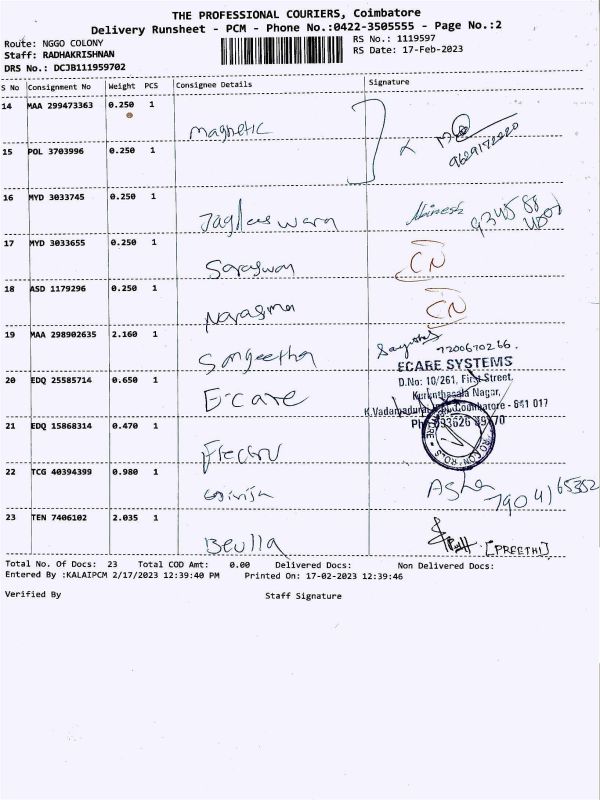 THE PROFESSIONAL COURIERS, Coimbatore
Delivery Runsheet - PCM - Phone No.:0422-3505555 - Page No.:2
Route: NGGO COLONY
RS No.: 1119597
Staff: RADHAKRISHNAN
RS Date: 17-Feb-2023
DRS No.: DCJB111959702
S No Consignment No Weight PCS Consignee Details Signature
14 MAA 299473363 0.250 1 Magnetic
15 POL 3703996 0.250 1
16 MYD 3033745 0.250 1
17 MYD 3033655 0.250 1 CN
18 ASD 1179296 0.250 1 CN
19 MAA 298902635 2.160 1 Sangeetha 7200670266.
ECARE SYSTEMS
D.No: 10/261, First Street,
20 EDQ 25585714 0.650 1 E-care Nagar,
Coimbatore - 641 017
21 EDQ 15868314 0.470 1
22 TCG 40394399 0.980 1 Asha
23 TEN 7406102 2.035 1 Beulla [PREETHI]
Total No. Of Docs: 23 Total COD Amt: 0.00 Delivered Docs: Non Delivered Docs:
Entered By :KALAIPCM 2/17/2023 12:39:40 PM Printed On: 17-02-2023 12:39:46
Verified By Staff Signature